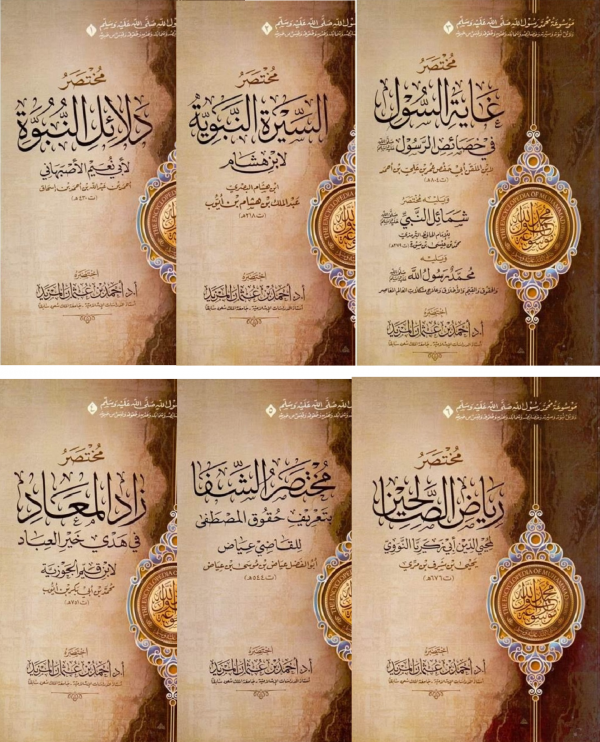 ١
مختصر
دلائل النبوة
لأبي نعيم الأصبهاني
(ت ٤٣٠هـ)
اختصره
أ.د. أحمد بن عثمان المزيد
٢
مختصر
السيرة النبوية
لابن هشام
ابن هشام البصري
عبد الملك بن هشام بن أيوب
(ت ٢١٨هـ)
اختصره
أ.د. أحمد بن عثمان المزيد
موسوعة محمد رسول الله صلى الله عليه وسلم
٣
مختصر
غاية السول
في خصائص الرسول ﷺ
(ت ٨٠٤هـ)
ويليه مختصر
شمائل النبي ﷺ
ويليه
محمد رسول الله ﷺ
اختصره
أ.د. أحمد بن عثمان المزيد
٤
مختصر
زاد المعاد
في هدي خير العباد
لابن قيم الجوزية
محمد بن أبي بكر بن أيوب
(ت ٧٥١هـ)
اختصره
أ.د. أحمد بن عثمان المزيد
٥
مختصر الشفا
بتعريف حقوق المصطفى
للقاضي عياض
أبو الفضل عياض بن موسى بن عياض
(ت ٥٤٤هـ)
اختصره
أ.د. أحمد بن عثمان المزيد
موسوعة محمد رسول الله صلى الله عليه وسلم
٦
مختصر
رياض الصالحين
لمحيي الدين أبي زكريا النووي
يحيى بن شرف بن مري
(ت ٦٧٦هـ)
اختصره
أ.د. أحمد بن عثمان المزيد